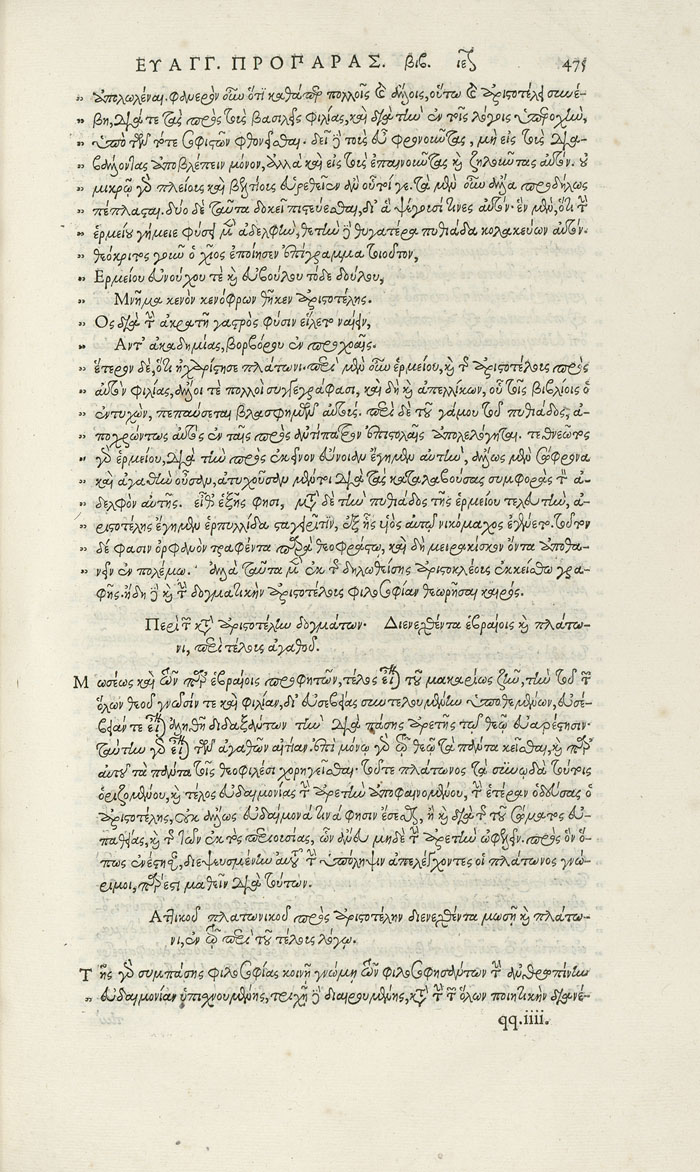 ΕΥΑΓΓ. ΠΡΟΠΑΡΑΣ. βιβ. ιεʹ 475
ἀπολωλέναι. φανερὸν οὖν ὅτι καθάπερ πολλοῖς καὶ ἄλλοις, οὕτω καὶ ἀριστοτέλει συνέ-
βη, διά τε τὰς πρὸς τοὺς βασιλεῖς φιλίας, καὶ διὰ τὴν ἐν τοῖς λόγοις ὑπεροχὴν,
ὑπὸ τῶν τότε σοφιστῶν φθονεῖσθαι. δεῖ δὲ τοὺς εὖ φρονοῦντας, μὴ εἰς τοὺς δια-
βάλλοντας ἀποβλέπειν μόνον, ἀλλὰ καὶ εἰς τοὺς ἐπαινοῦντας καὶ ζηλοῦντας αὐτόν. οὐ
μικρῷ γὰρ πλείους καὶ βελτίους εὑρεθεῖεν ἂν οὗτοί γε. τὰ μὲν οὖν ἄλλα προδήλως
πέπλασται. δύο δὲ ταῦτα δοκεῖ πιστεύεσθαι, δι' ἃ ψέγουσί τινες αὐτόν. ἓν μὲν, ὅτι τὴν
ἑρμείου γήμειε φύσει μὲν ἀδελφὴν, θετὴν δὲ θυγατέρα πυθιάδα κολακεύων αὐτόν.
θεόκριτος γοῦν ὁ χῖος ἐποίησεν ἐπίγραμμα τοιοῦτον,
Ερμείου εὐνούχου τὲ καὶ εὐβούλου τόδε δούλου,
Μνῆμα κενὸν κενόφρων θῆκεν ἀριστοτέλης.
Ος διὰ τὴν ἀκρατῆ γαστρὸς φύσιν εἵλετο ναίειν,
Αντ' ἀκαδημίας, βορβόρου ἐν προχοαῖς.
ἕτερον δὲ, ὅτι ἠχαρίστησε πλάτωνι. περὶ μὲν οὖν ἑρμείου, καὶ τῆς ἀριστοτέλους πρὸς
αὐτὸν φιλίας, ἄλλοι τὲ πολλοὶ συγγεγράφασι, καὶ δὴ καὶ ἀπελλίκων, οὗ τοῖς βιβλίοις ὁ
ἐντυχὼν, πεπαύσεται βλασφημῶν αὐτούς. περὶ δὲ τοῦ γάμου τοῦ πυθιάδος, ἀ-
ποχρώντως αὐτὸς ἐν ταῖς πρὸς ἀντίπατρον ἐπιστολαῖς ἀπολελόγηται. τεθνεῶτος
γὰρ ἑρμείου, διὰ τὴν πρὸς ἐκεῖνον εὔνοιαν ἔγημεν αὐτὴν, ἄλλως μὲν σώφρονα
καὶ ἀγαθὴν οὖσαν, ἀτυχοῦσαν μέντοι διὰ τὰς καταλαβούσας συμφορὰς τὸν ἀ-
δελφὸν αὐτῆς. εἶθ' ἑξῆς φησι, μετὰ δὲ τὴν πυθιάδος τῆς ἑρμείου τελευτὴν, ἀ-
ριστοτέλης ἔγημεν ἑρπυλλίδα σταγειρῖτιν, ἐξ ἧς υἱὸς αὐτῷ νικόμαχος ἐγένετο. τοῦτον
δέ φασιν ὀρφανὸν τραφέντα παρὰ θεοφράστῳ, καὶ δὴ μειρακίσκον ὄντα ἀποθα-
νεῖν ἐν πολέμῳ. ἀλλὰ ταῦτα μὲν ἐκ τῆς δηλωθείσης ἀριστοκλέους ἐκκείσθω γρα-
φῆς. ἤδη δὲ καὶ τὴν δογματικὴν ἀριστοτέλους φιλοσοφίαν θεωρῆσαι καιρός.
Περὶ τῶν κατ' ἀριστοτέλην δογμάτων. Διενεχθέντα ἑβραίοις καὶ πλάτω-
νι, περὶ τέλους ἀγαθοῦ.
Μωσέως καὶ τῶν παρ' ἑβραίοις προφητῶν, τέλος εἶναι τοῦ μακαρίως ζῆν, τὴν τοῦ τῶν
ὅλων θεοῦ γνῶσίν τε καὶ φιλίαν, δι' εὐσεβείας συντελουμένην ὑποθεμένων, εὐσέ-
βειάν τε εἶναι ἀληθῆ διδαξάντων τὴν διὰ πάσης ἀρετῆς τῷ θεῷ εὐαρέστησιν.
ταύτην γὰρ εἶναι τῶν ἀγαθῶν αἰτίαν. ἐπὶ μόνῳ γὰρ τῷ θεῷ τὰ πάντα κεῖσθαι, καὶ παρ'
αὐτοῦ τὰ πάντα τοῖς θεοφιλέσι χορηγεῖσθαι. τοῦτε πλάτωνος τὰ σύνῳδα τούτοις
ὁριζομένου, καὶ τέλος εὐδαιμονίας τὴν ἀρετὴν ἀποφαινομένου, τὴν ἑτέραν ὁδεύσας ὁ
ἀριστοτέλης, οὐκ ἄλλως εὐδαίμονά τινά φησιν ἔσεσθαι, ἢ καὶ διὰ τῆς τοῦ σώματος εὐ-
παθείας, καὶ τῆς τῶν ἐκτὸς περιουσίας, ὧν ἄνευ μηδὲ τὴν ἀρετὴν ὠφελεῖν. πρὸς ὃν ὅ-
πως ἐνέστησαν, διεψευσμένην αὐτοῦ τὴν ὑπόληψιν ἀπελέγχοντες οἱ πλάτωνος γνώ-
ριμοι, πάρεστι μαθεῖν διὰ τούτων.
Αττικοῦ πλατωνικοῦ πρὸς ἀριστοτέλην διενεχθέντα μωσῇ καὶ πλάτω-
νι, ἐν τῷ περὶ τοῦ τέλους λόγῳ.
Τῆς γὰρ συμπάσης φιλοσοφίας κοινῇ γνώμῃ τῶν φιλοσοφησάντων τὴν ἀνθρωπίνην
εὐδαιμονίαν ὑπισχνουμένης, τριχῇ δὲ διαιρουμένης, κατὰ τὴν τῶν ὅλων ποιητικὴν διανέ-
qq.iiii.